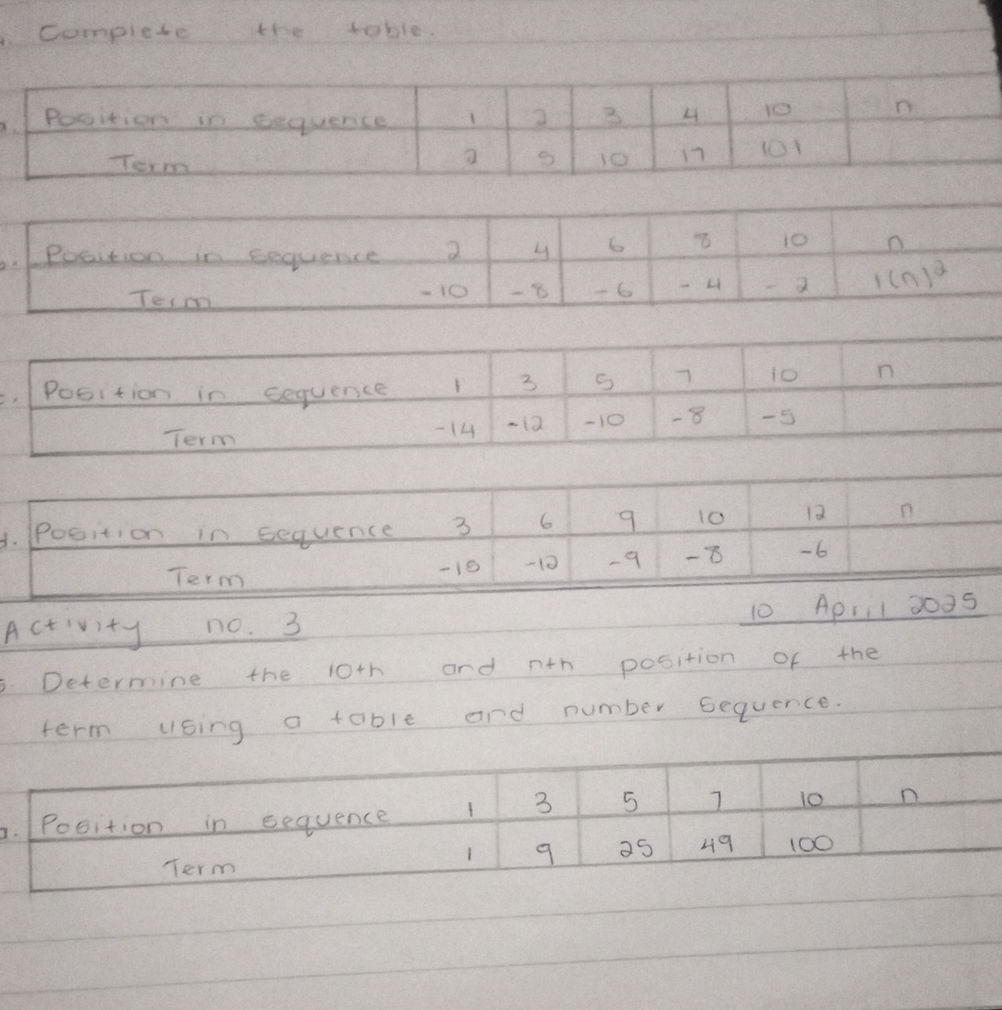 Complete the table.
a. Position in sequence 1 2 3 4 10 n
Term 2 5 10 17 101
b. Position in sequence 2 4 6 8 10 n
Term -10 -8 -6 -4 -2 1(n)²
c. Position in sequence 1 3 5 7 10 n
Term -14 -12 -10 -8 -5
d. Position in sequence 3 6 9 10 12 n
Term -15 -12 -9 -8 -6
Activity no. 3 10 April 2025
5. Determine the 10th and nth position of the
term using a table and number sequence.
a. Position in sequence 1 3 5 7 10 n
Term 1 9 25 49 100